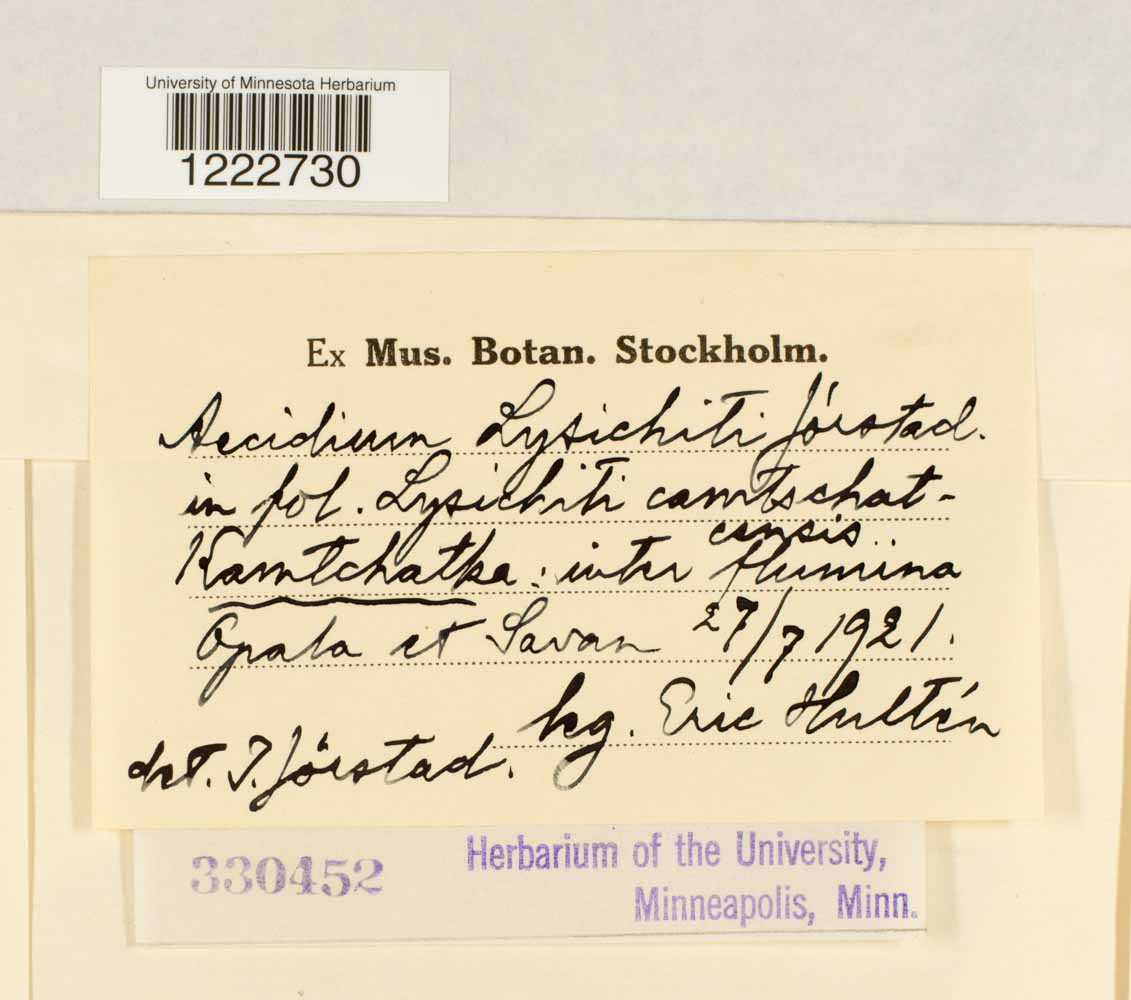 University of Minnesota Herbarium
1222730
Ex Mus. Botan. Stockholm.
Aecidium Lysichiti Jörstad.
in fol. Lysichiti camtschat-
censis.
Kamtchatka: inter flumina
Opala et Savan 27/7 1921.
leg. Eric Hultén
det. I. Jörstad.
330452
Herbarium of the University,
Minneapolis, Minn.